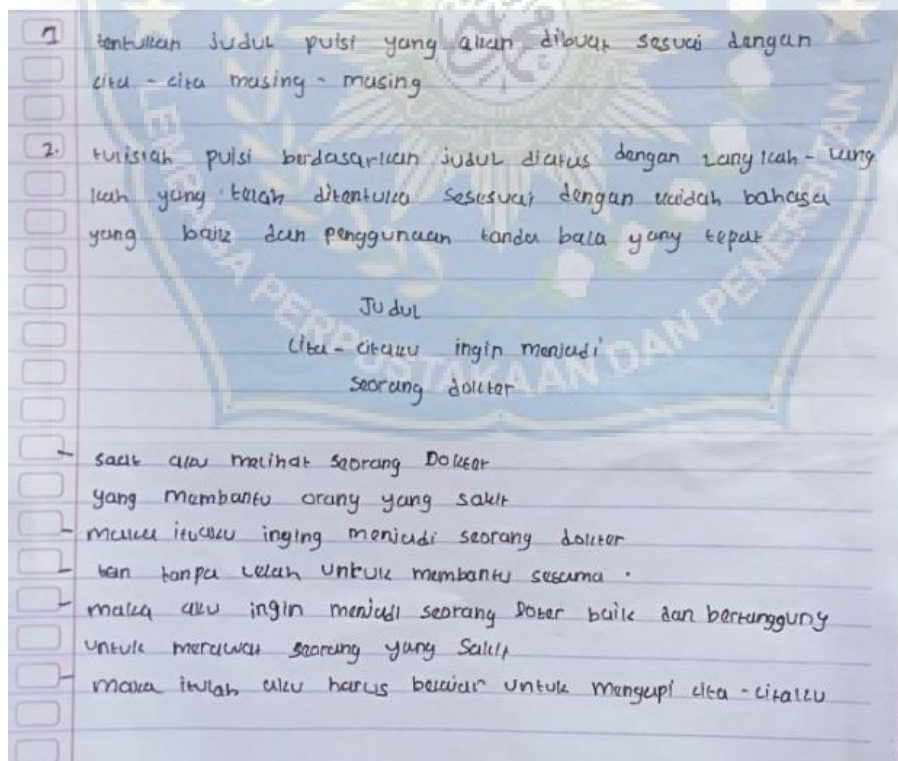 1 tentukan judul puisi yang akan dibuat sesuai dengan
cita - cita masing - masing
2. tulislah puisi berdasarkan judul diatas dengan langkah - lang
kah yang telah ditentuka sesusuai dengan kaidah bahasa
yang baik dan penggunaan tanda baca yang tepat
Judul
Cita - citaku ingin menjadi
seorang dokter
- saat aku melihat seorang Dokter
yang membantu orang yang sakit
- maka ituaku inging menjadi seorang dokter
- tan tanpa lelah untuk membantu sesama .
- maka aku ingin menjadi seorang Doter baik dan bertanggung
untuk merawat seorang yang sakit
- maka itulah aku harus belajar untuk mengapi cita - citaku
LEMBAGA PERPUSTAKAAN DAN PENERBITAN